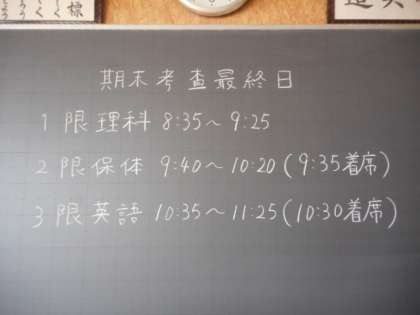 期末考査最終日
1限理科 8:35～9:25
2限保体 9:40～10:20(9:35着席)
3限英語 10:35～11:25(10:30着席)